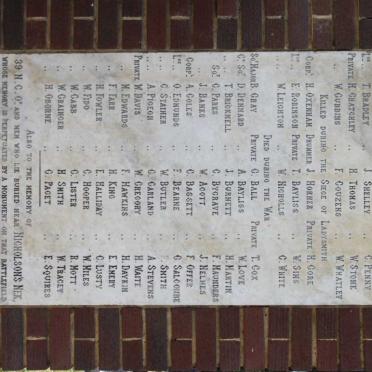 T. BRADLEY .. J. SHELLEY .. C. PENNY
PRIVATE H. CHATCHLEY .. H. THOMAS .. W. STONE
.. W. GUBBINS .. .. W. WHATLEY
KILLED DURING THE SIEGE OF LADYSMITH
CORPL H. OXENHAM DRUMMER J. HORNER PRIVATE H. GORE
E. ROBINSON PRIVATE T. BAYLISS .. W. SING
.. W. LEIGHTON .. W. NICHOLLS .. C. WHITE
DIED DURING THE WAR
B. GRAY PRIVATE G. BALL PRIVATE T. COX
D. PENHARD .. A. BAYLISS .. W. LOVE
.. T. BRICKNELL .. J. BURNETT .. H. MARTIN
SGT C. PARKS .. C. BUGRAVE .. F. MAUNDERS
.. J. BANKS .. W. ACOTT .. J. NELMES
CORPL A. COLES .. C. BASSETT .. F. OFFER
O. EDMUNDS .. F. BEARNE .. G. SALCOMBE
.. C. STAINER .. W. BUTLER .. F. SMITH
.. A. PIGEON .. C. GARLAND .. A. STEVENS
PRIVATE W. DAVIS .. W. GREGORY .. H. WAITE
.. M. EDWARDS .. F. HAWKINS .. H. DAYKIN
.. F. FARR .. E. KING .. E. EMERY
.. H. FOWLER .. E. HALLIDAY .. C. LUSTY
.. W. FIDO .. C. HOOPER .. W. MILES
.. W. GABB .. C. LISTER .. R. MOTT
.. W. GRAINGER .. H. SMITH .. W. TRACEY
.. H. OSBORNE .. G. PAGET .. E. SQUIRES
ALSO TO THE MEMORY OF
39 N.C.OS AND MEN WHO LIE BURIED NEAR NICHOLSONS NEK,
WHOSE MEMORY IS PERPETUATED BY A MONUMENT ON THAT BATTLEFIELD.